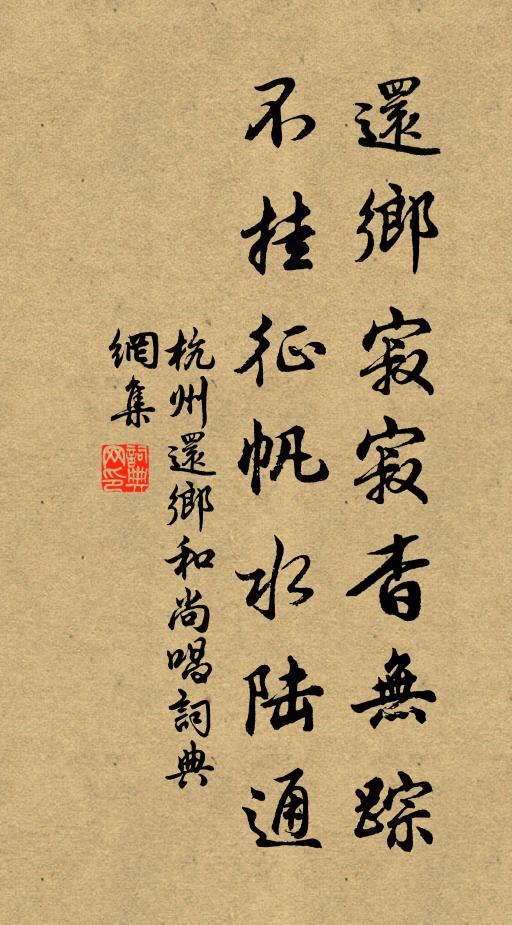 還鄉寂寂杳無踪
不挂征帆水陆通
杭州還鄉和尚唱詞典
網集
詞典網印